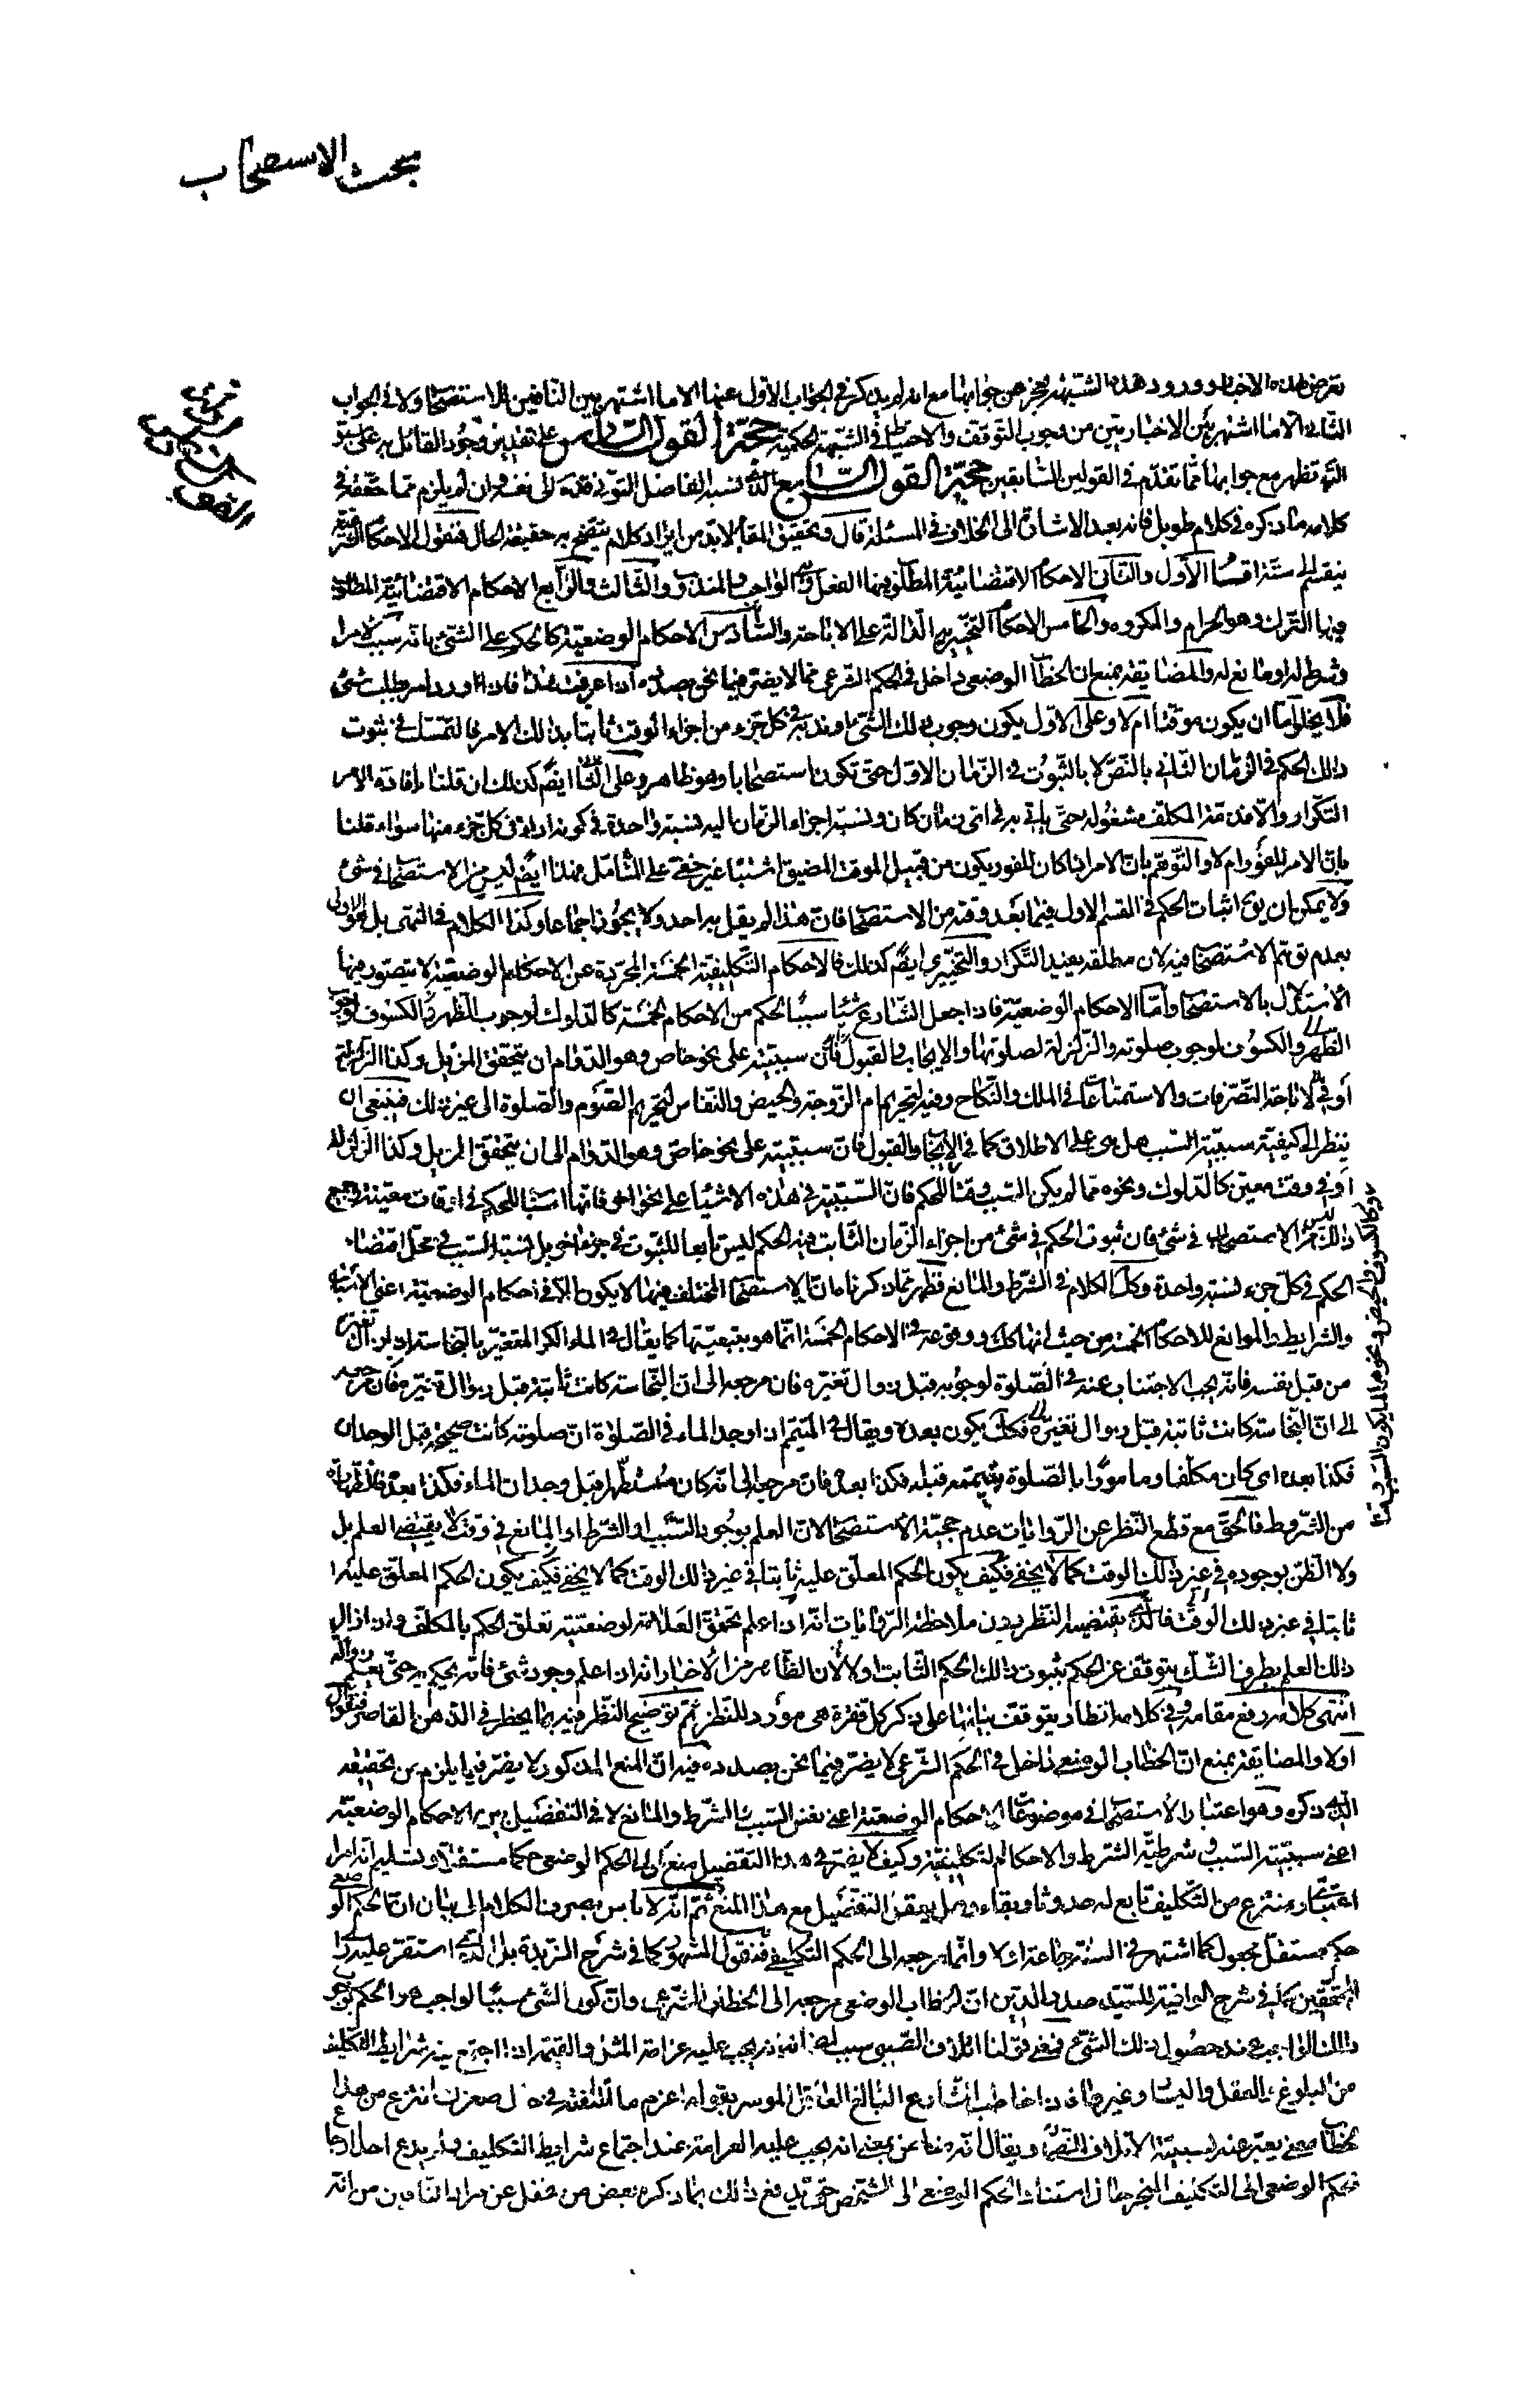 مبحث الاستصحاب
تعرض لهذه الاخبار و ورود هذه الشبهة يعجز عن جوابها مع انه لم يذكر فى الجواب الاول عنها الا ما اشتهر بين النافين للاستصحاب ولا فى الجواب
الثانى الا ما اشتهر بين الاخباريين من وجوب التوقف والاحتياط فى الشبهة الحكمية حجة القول السادس على تقدير وجود القائل به على
تظهر مع جوابها مما تقدم فى القولين السابقين حجة القول السابع الذى نسبه الفاضل التونى قده الى نفسه وان لم يلزم مما حققه فى
كلامه ما ذكره فى كلام طويل فانه بعد الاشارة الى الخلاف فى المسئلة قال و تحقيق المقام لابد من ايراد كلام يتضح به حقيقة الحال فنقول الاحكام الشرعية
ينقسم الى ستة اقسام الاول والثانى الاحكام الاقتضائية المطلوب فيها الفعل وهى الواجب والمندوب والثالث والرابع الاحكام الاقتضائية المطلوب
فيها الترك وهو الحرام والمكروه والخامس الاحكام التخييرية الدالة على الاباحة والسادس الاحكام الوضعية كالحكم على الشئ بانه سبب لامر او
شرط له او مانع له والمضايقة بمنع ان الخطاب الوضعى داخل فى الحكم الشرعى مما لا يضر فيما نحن بصدده اذا عرفت هذا فاذا ورد امر بطلب شئ
فلا يخلو اما ان يكون موقتا ام لا وعلى الاول يكون وجوب ذلك الشئ او ندبه فى كل جزء من اجزاء الوقت ثابتا بذلك الامر فالتمسك فى ثبوت
ذلك الحكم فى الزمان الثانى بالنص لا بالثبوت فى الزمان الاول حتى تكون استصحابا وهو ظاهر وعلى الثانى ايضا كذلك ان قلنا بافادة الامر
التكرار والا فذمة المكلف مشغوله حتى ياتى به فى اى زمان كان ونسبة اجزاء الزمان اليه نسبة واحدة فى كونه اداء فى كل جزء منها سواء قلنا
بان الامر للفور ام لا والتوهم بان الامر اذا كان للفور يكون من قبيل الموقت المضيق اشتباه غير خفى على المتامل فهذا ايضا ليس من الاستصحاب فى شئ
ولا يمكن ان يق اثبات الحكم فى القسم الاول فيما بعد وقته من الاستصحاب فان هذا لم يقل به احد ولا يجوز اجماعا وكذا الكلام فى النهى بل هو اولى
بعدم توهم الاستصحاب فيه لان مطلقه يفيد التكرار والتخييرى ايضا كذلك فالاحكام التكليفية الخمسة المجردة عن الاحكام الوضعية لا يتصور فيها
الاستدلال بالاستصحاب واما الاحكام الوضعية فاذا جعل الشارع شيئا سببا لحكم من الاحكام الخمسة كالدلوك لوجوب الظهر والكسوف لوجوب
الظهر والكسوف لوجوب صلوته والزلزلة لصلوتها والايجاب والقبول فان سببيته على نحو خاص وهو الدوام ان يتحقق المزيل وكذا الزلزلة
او فى لاباحة التصرفات والاستمتاعات فى الملك والنكاح وفيه لتحريم ام الزوجة والحيض والنفاس لتحريم الصوم والصلوة الى غير ذلك فينبغى ان
ينظر الى كيفية سببية السبب هل هى على الاطلاق كما فى الايجاب والقبول فان سببيته على نحو خاص وهو الدوام الى ان يتحقق المزيل وكذا الزلزلة
او فى وقت معين كالدلوك ونحوه مما لم يكن السبب وقتا للحكم فان السببية فى هذه الاشياء على نحو اخر فانها اسباب للحكم فى اوقات معينة وجميع
ذلك ليس من الاستصحاب فى شئ فان ثبوت الحكم فى شئ من اجزاء الزمان الثابت فيه الحكم ليس تابعا للثبوت فى جزء اخر بل نسبة السبب فى محل اقتضاء
الحكم فى كل جزء نسبة واحدة وكذا الكلام فى الشرط والمانع فظهر مما ذكرنا ان الاستصحاب المختلف فيها لا يكون الا فى احكام الوضعية اعنى الاسباب
والشرايط والموانع للاحكام الخمسة من حيث انها كذلك ووقوعه فى الاحكام الخمسة انما هو بتبعيتها كما يقال فى الماء الكر المتغير بالنجاسة اذا زال تغيره
من قبل نفسه فانه يجب الاجتناب عنه فى الصلوة لوجوبه قبل زوال تغيره فان مرجعه الى ان النجاسة كانت ثابتة قبل زوال تغيره فان مرجعه
الى ان النجاسة كانت ثابتة قبل زوال تغيره فكذلك يكون بعده ويقال فى المتيمم اذا وجد الماء فى الصلوة ان صلوته كانت صحيحة قبل الوجدان
فكذا بعده اى كان مكلفا ومامورا بالصلوة بتيممه قبله فكذا بعده فان مرجعه الى انه كان متطهرا قبل وجدان الماء فكذا بعده والطهارة
من الشروط فالحق مع قطع النظر عن الروايات عدم حجية الاستصحاب لان العلم بوجود السبب او الشرط او المانع فى وقت لا يقتضى العلم بل
ولا الظن بوجوده فى غير ذلك الوقت كما لا يخفى فكيف يكون الحكم المعلق عليه ثابتا فى غير ذلك الوقت كما لا يخفى فكيف يكون الحكم المعلق عليه
ثابتا فى غير ذلك الوقت فالذى يقتضيه النظر بدون ملاحظة الروايات انه اذا علم تحقق العلامة الوضعية تعلق الحكم بالمكلف واذا زال
ذلك العلم بطرو الشك يتوقف عن الحكم بثبوت ذلك الحكم الثابت اولا الا ان الظاهر من الاخبار انه اذا علم وجود شئ فانه يحكم به حتى يعلم زواله
انتهى كلامه رفع مقامه وفى كلامه انظار يتوقف بيانها على ذكر كل فقرة هى مورد للنظر ثم توضيح النظر فيه بما يخطر فى الذهن القاصر فنقول
اولا والمضايقة بمنع ان الخطاب الوضعى داخل فى الحكم الشرعى لا يضر فيما نحن بصدده فيه ان المنع المذكور لا يضر فيما يلزم من تحقيقه
الذى ذكره وهو اعتبار الاستصحاب فى موضوعات الاحكام الوضعية اعنى نفس السبب والشرط والمانع لا فى التفصيل بين الاحكام الوضعية
اعنى سببية السبب وشرطية الشرط والاحكام التكليفية وكيف لا يضر فى هذا التفصيل منع كون الحكم الوضعى حكما مستقلا وتسليم انه امر
اعتبارى منتزع من التكليف تابع له حدوثا وبقاء وهل يعقل التفصيل مع هذا المنع ثم انه لا باس بصرف الكلام الى بيان ان الحكم الوضعى
حكم مستقل مجعول كما اشتهر فى السنة جماعة او لا وانما مرجعه الى الحكم التكليفى فنقول المشهور كما فى شرح الزبدة بل الذى استقر عليه راى
المحققين كما فى شرح الوافية للسيد صدر الدين ان الخطاب الوضعى مرجعه الى الخطاب الشرعى وان كون الشئ سببا لواجب هو الحكم بوجوب
ذلك الواجب عند حصول ذلك الشئ فمعنى قولنا اتلاف الصبى سبب لضمانه انه يجب عليه غرامة المثل والقيمة اذا اجتمع فيه شرايط التكليف
من البلوغ والعقل واليسار وغيرها فاذا خاطب الشارع البالغ العاقل الموسر بقوله اغرم ما اتلفته فى صغرك انتزع من هذا
الخطاب معنى يعبر عنه بسببية الاتلاف للضمان ويقال انه ضامن بمعنى انه يجب عليه الغرامة عند اجتماع شرايط التكليف ولم يدع احد ارجاع
الحكم الوضعى الى التكليف المنجز حال استناد الحكم الوضعى الى الشخص حتى يدفع ذلك بما ذكره بعض من غفل عن مراد النافين من انه